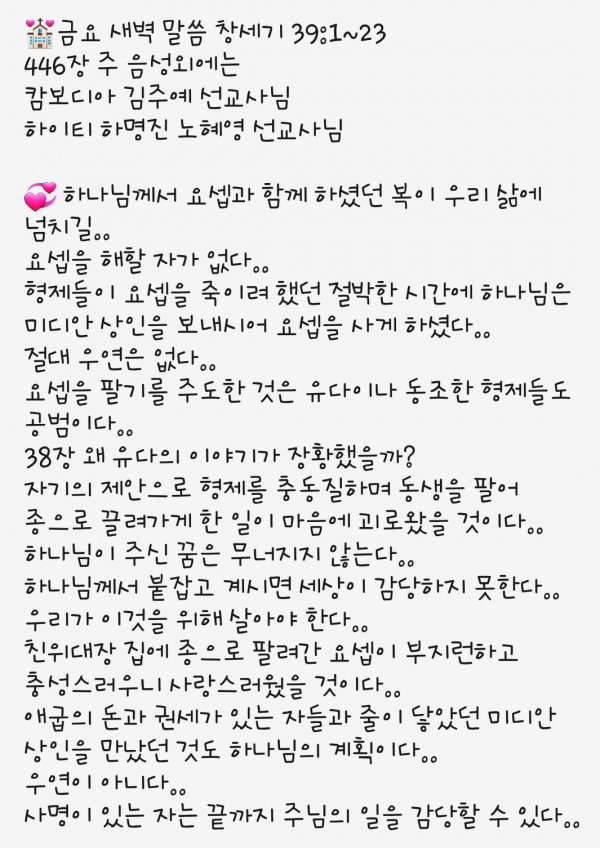 💒금요 새벽 말씀 창세기 39:1~23
446장 주 음성외에는
캄보디아 김주예 선교사님
하이티 하명진 노혜영 선교사님
💞하나님께서 요셉과 함께 하셨던 복이 우리 삶에
넘치길..
요셉을 해할 자가 없다..
형제들이 요셉을 죽이려 했던 절박한 시간에 하나님은
미디안 상인을 보내시어 요셉을 사게 하셨다..
절대 우연은 없다..
요셉을 팔기를 주도한 것은 유다이나 동조한 형제들도
공범이다..
38장 왜 유다의 이야기가 장황했을까?
자기의 제안으로 형제를 충동질하며 동생을 팔어
종으로 끌려가게 한 일이 마음에 괴로왔을 것이다..
하나님이 주신 꿈은 무너지지 않는다..
하나님께서 붙잡고 계시면 세상이 감당하지 못한다..
우리가 이것을 위해 살아야 한다..
친위대장 집에 종으로 팔려간 요셉이 부지런하고
충성스러우니 사랑스러웠을 것이다..
애굽의 돈과 권세가 있는 자들과 줄이 닿았던 미디안
상인을 만났던 것도 하나님의 계획이다..
우연이 아니다..
사명이 있는 자는 끝까지 주님의 일을 감당할 수 있다..